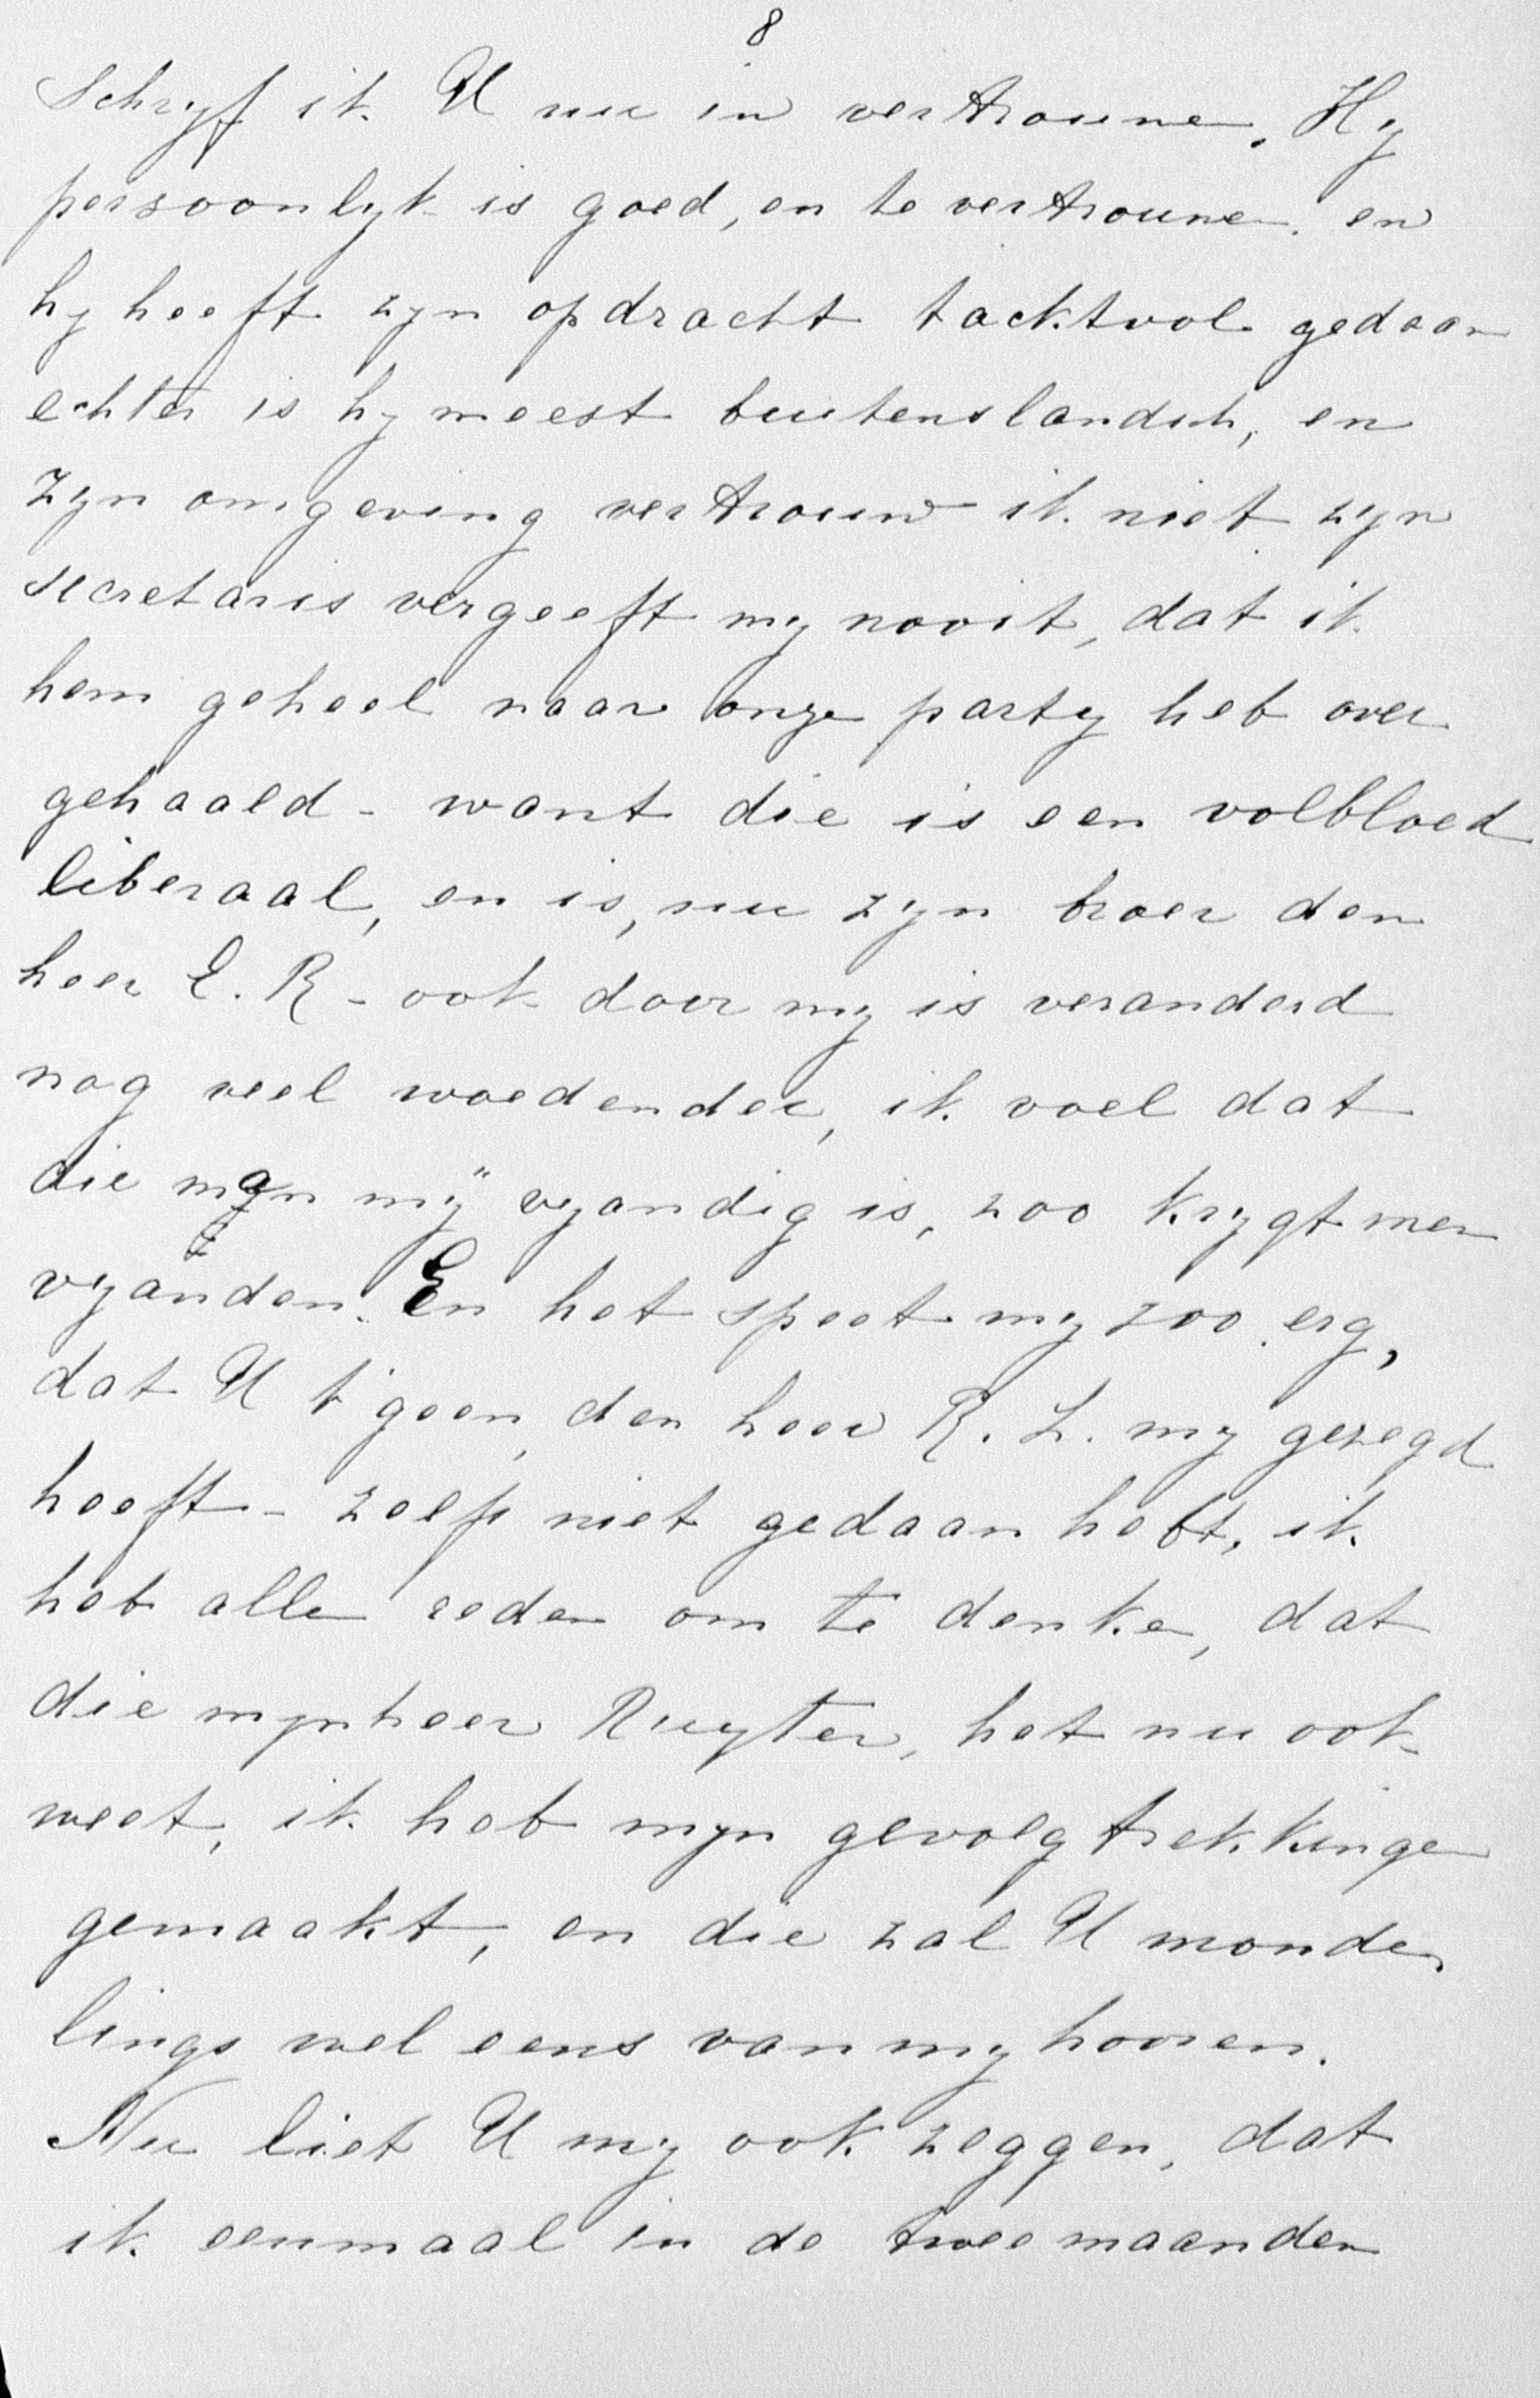 8
Schryf ik U nu in vertrouwe. Hy
persoonlyk is goed, en te vertrouwe. en
hy heeft zyn opdracht tacktvol gedaan
echter is hy meest buitenslandsch, en
zyn omgeving vertrouw ik niet zyn
secretaris vergeeft my nooit, dat ik
hem geheel naar onze party heb over
gehaald - want die is een volbloed
liberaal, en is, nu zyn broer den
heer E. R - ook door my is veranderd
nog veel woedender, ik voel dat
die man my vyandig is, zoo krygt men
vyanden. En het speet my zoo erg,
dat U t'geen, den heer R. L. my gezegd
heeft - zelf niet gedaan hebt, ik
heb alle reden om te denke, dat
die mynheer Ruyter, het nu ook
weet, ik heb myn gevolgtrekkinge
gemaakt, en die zal U monde
lings wel eens van my hooren.
Nu liet U my ook zeggen, dat
ik eenmaal in de twee maanden